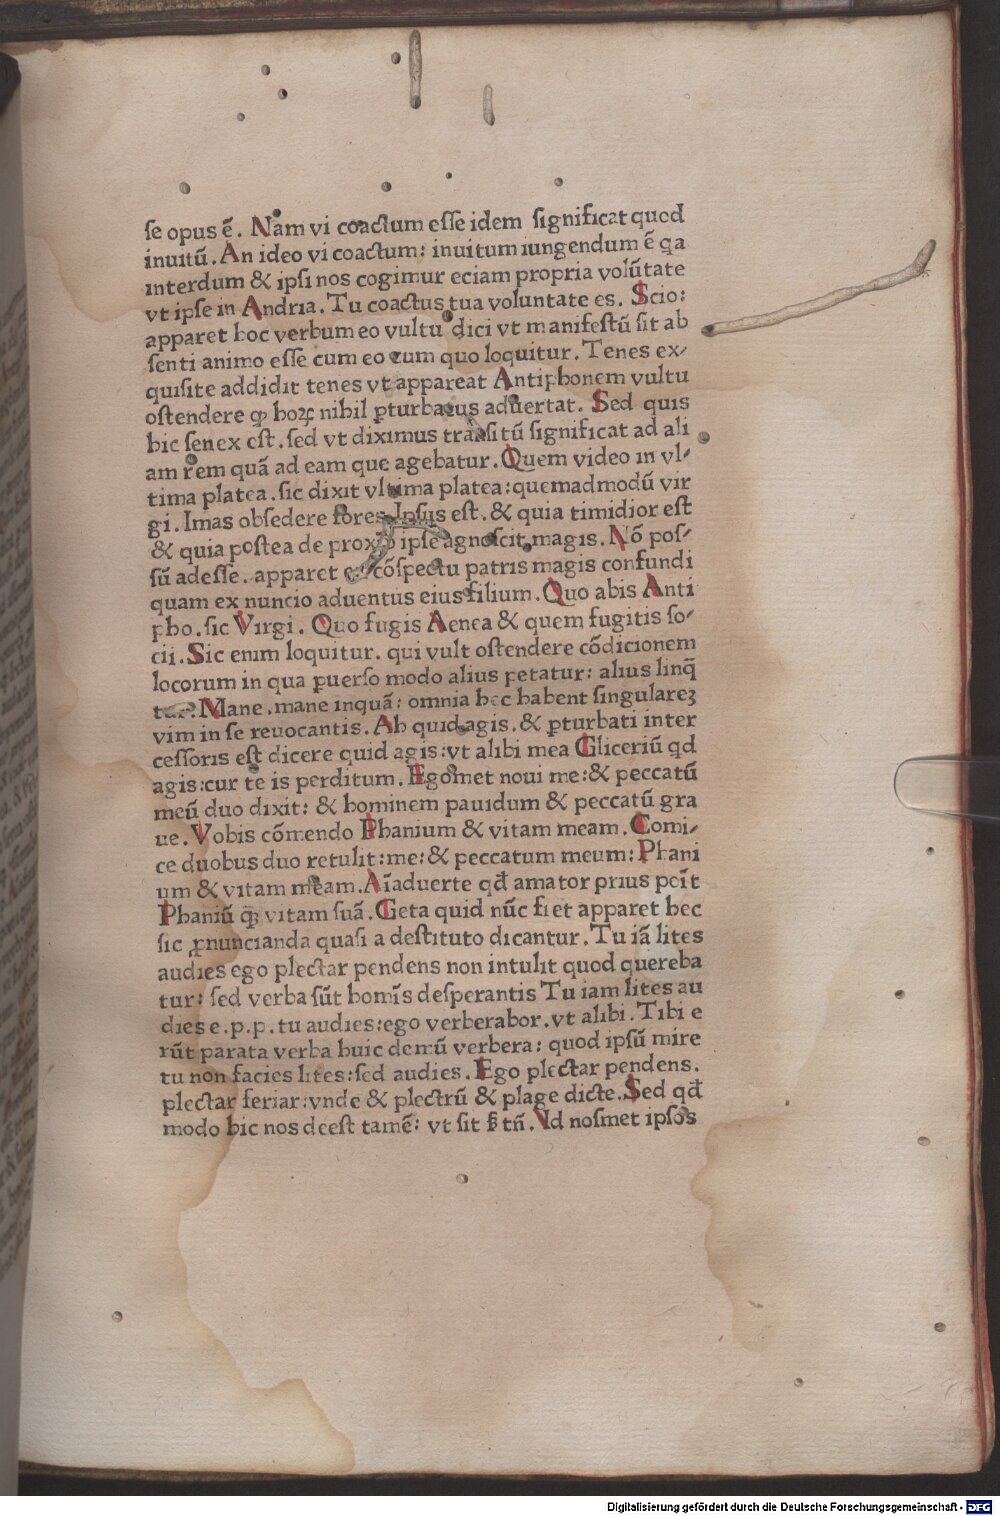 se opus ē. Nam vi coactum esse idem significat quod
inuitū. An ideo vi coactum: inuitum iungendum ē qa
interdum & ipsi nos cogimur eciam propria volūtate
vt ipse in Andria. Tu coactus tua voluntate es. Scio:
apparet hoc verbum eo vultu dici vt manifestū sit ab
senti animo esse cum eo cum quo loquitur. Tenes ex⸗
quisite addidit tenes vt appareat Antiphonem vultu
ostendere ꝙ hoꝝ nihil ꝑturbatus aduertat. Sed quis
hic senex est. sed vt diximus trāsitū significat ad ali
am rem quā ad eam que agebatur. Quem video in vl⸗
tima platea. sic dixit vltima platea: quemadmodū vir
gi. Imas obsedere fores Ipsus est. & quia timidior est
& quia postea de proxio ipse agnoscit magis. Nō pos⸗
sū adesse. apparet cōspectu patris magis confundi
quam ex nuncio aduentus eius filium. Quo abis Anti
pho. sic Virgi. Quo fugis Aenea & quem fugitis so⸗
cii. Sic enim loquitur. qui vult ostendere cōdicionem
locorum in qua ꝑuerso modo alius petatur: alius linq̄
tur. Mane. mane inquā: omnia hec habent singulareꝫ
vim in se reuocantis. Ab quid agis. & ꝑturbati inter
cessoris est dicere quid agis: vt alibi mea Gliceriū qd
agis: cur te is perditum. Egomet noui me: & peccatū
meū duo dixit: & hominem pauidum & peccatū gra
ue. Vobis cōmendo Phanium & vitam meam. Comi⸗
ce duobus duo retulit: me: & peccatum meum: Phani
um & vitam meam. Aīaduerte qđ amator prius poīt
Phaniū ꝗ̄ꝫ vitam suā. Geta quid nūc fiet apparet hec
sic ꝓnuncianda quasi a destituto dicantur. Tu iā lites
audies ego plectar pendens non intulit quod quereba
tur: sed verba sūt homīs desperantis Tu iam lites au
dies e. p. p. tu audies: ego verberabor. vt alibi. Tibi e
rūt parata verba huic demū verbera: quod ipsū mire
tu non facies lites: sed audies. Ego plectar pendens.
plectar feriar: vnde & plectrū & plage dicte. Sed qđ
modo hic nos deest tamē: vt sit ẜ tn̄. Id nosmet ipsos
Digitalisierung gefördert durch die Deutsche Forschungsgemeinschaft - DFG